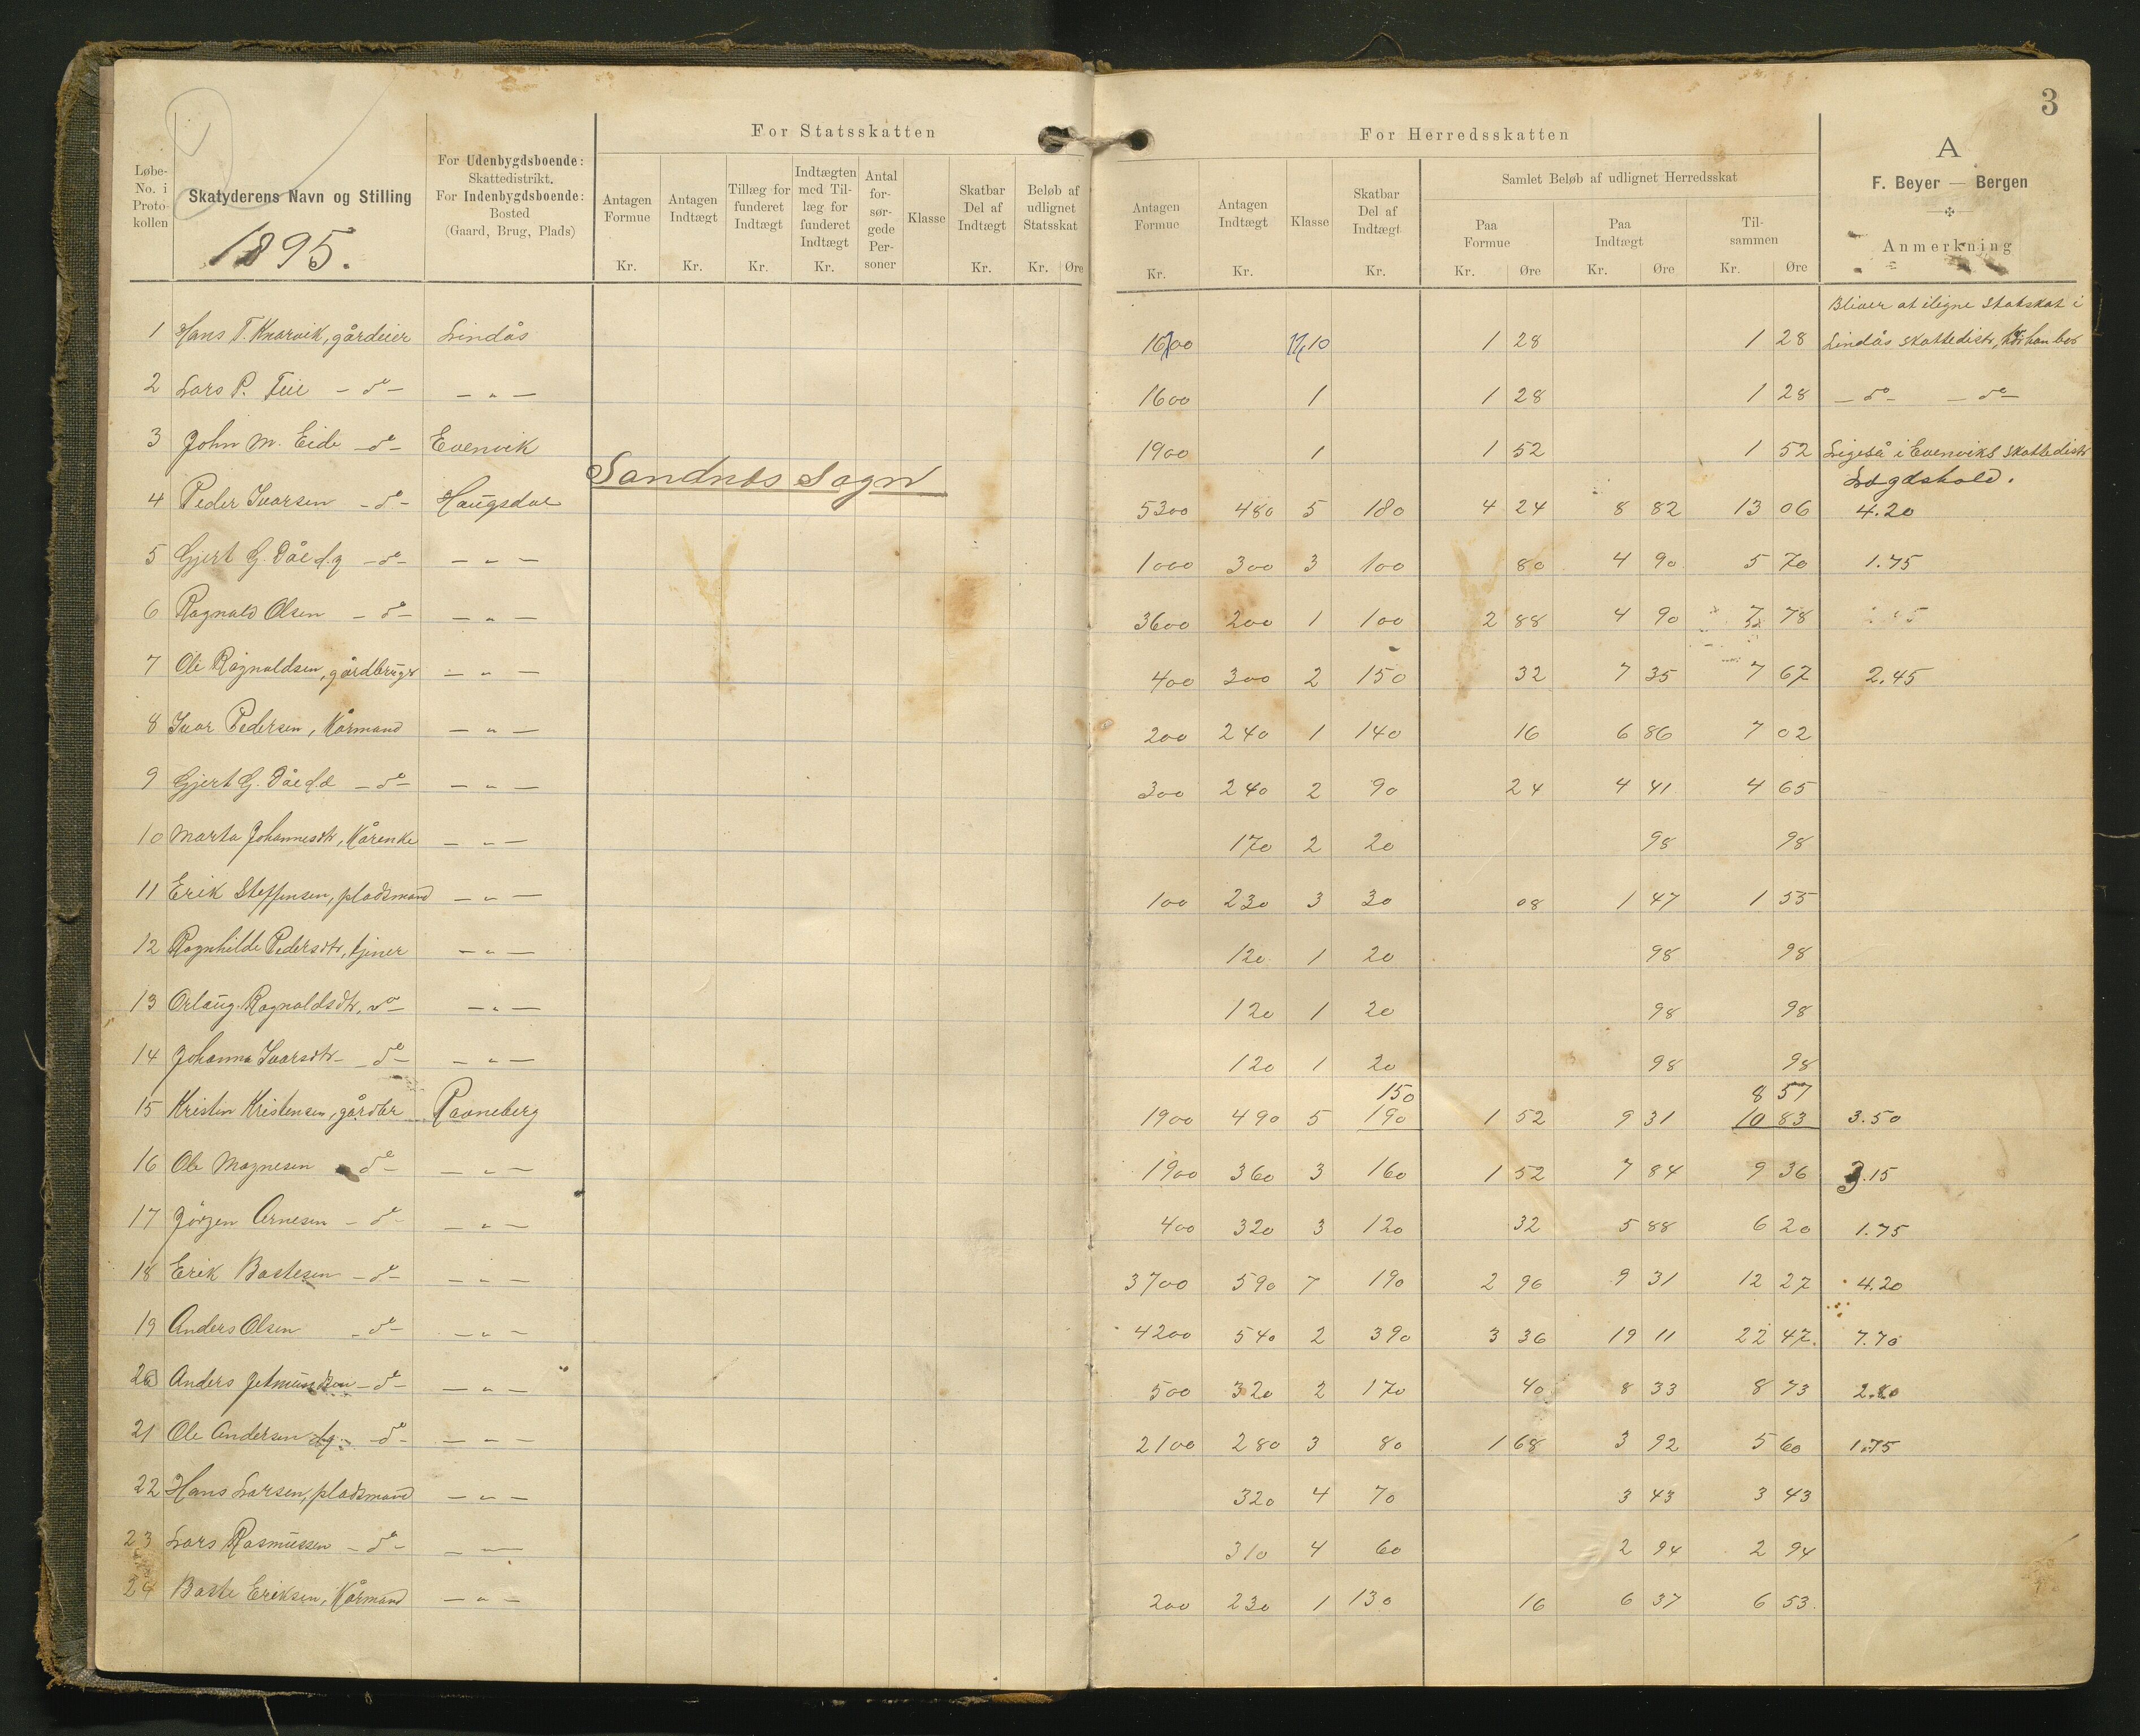 3
For Statsskatten
For Herredsskatten
A
F. Beyer — Bergen
Anmerkning
Løbe-No. i Proto-kollen
Skatyderens Navn og Stilling
1895.
For Udenbygdsboende: Skattedistrikt. For Indenbygdsboende: Bosted (Gaard, Brug, Plads)
Antagen Formue Kr.
Antagen Indtægt Kr.
Tillæg for funderet Indtægt Kr.
Indtægten med Til-læg for funderet Indtægt Kr.
Antal for-sør-gede Per-soner
Klasse
Skatbar Del af Indtægt Kr.
Beløb af udlignet Statsskat Kr. Øre
Antagen Formue Kr.
Antagen Indtægt Kr.
Klasse
Skatbar Del af Indtægt Kr.
Samlet Beløb af udlignet Herredsskat
Paa Formue Kr. Øre
Paa Indtægt Kr. Øre
Til-sammen Kr. Øre
Bliver at iligne Statskat i
1 Hans T. Knarvik, gårdeier Lindås 1600 1 28 1 28 Lindås skattedistr, hvor han bor
2 Lars P. Feie — do — — „ — 1600 1 1 28 1 28 — do — — do —
3 John M. Eide — do — Evenvik 1900 1 1 52 1 52 Ligeså i Evenviks skattedistr
Sandnes Sogn
Lægdshold.
4 Peder Ivarsen — do — Haugsdal 5300 480 5 180 4 24 8 82 13 06 4.20
5 Gjert G. Dåe d.y — do — — „ — 1000 300 3 100 80 4 90 5 70 1.75
6 Ragnald Olsen — do — — „ — 3600 200 1 100 2 88 4 90 7 78
7 Ole Ragnaldsen, gårdbruger — „ — 400 300 2 150 32 7 35 7 67 2.45
8 Ivar Pedersen, Kårmand — „ — 200 240 1 140 16 6 86 7 02
9 Gjert G. Dåe d.æ — do — — „ — 300 240 2 90 24 4 41 4 65
10 Marta Johannesdtr, Kårenke — „ — 170 2 20 98 98
11 Erik Steffensen, pladsmand — „ — 100 230 3 30 08 1 47 1 55
12 Ragnhilde Pedersdtr, tjener — „ — 120 1 20 98 98
13 Orlaug Ragnaldsdtr, do — — „ — 120 1 20 98 98
14 Johanna Ivarsdtr — do — — „ — 120 1 20 98 98
150 8 57
15 Kristen Kristensen, gårdbr Ravneberg 1900 490 5 190 1 52 9 31 10 83 3.50
16 Ole Magnesen — do — — „ — 1900 360 3 160 1 52 7 84 9 36 3.15
17 Jörgen Arnesen — do — — „ — 400 320 3 120 32 5 88 6 20 1.75
18 Erik Bastesen — do — — „ — 3700 590 7 190 2 96 9 31 12 27 4.20
19 Anders Olsen — do — — „ — 4200 540 2 390 3 36 19 11 22 47 7.70
20 Anders Jetmundsen — do — — „ — 500 320 2 170 40 8 33 8 73 2.80
21 Ole Andersen d.y. — do — — „ — 2100 280 3 80 1 68 3 92 5 60 1.75
22 Hans Larsen, pladsmand — „ — 320 4 70 3 43 3 43
23 Lars Rasmussen — do — — „ — 310 4 60 2 94 2 94
24 Baste Eriksen, Kårmand — „ — 200 230 1 130 16 6 37 6 53